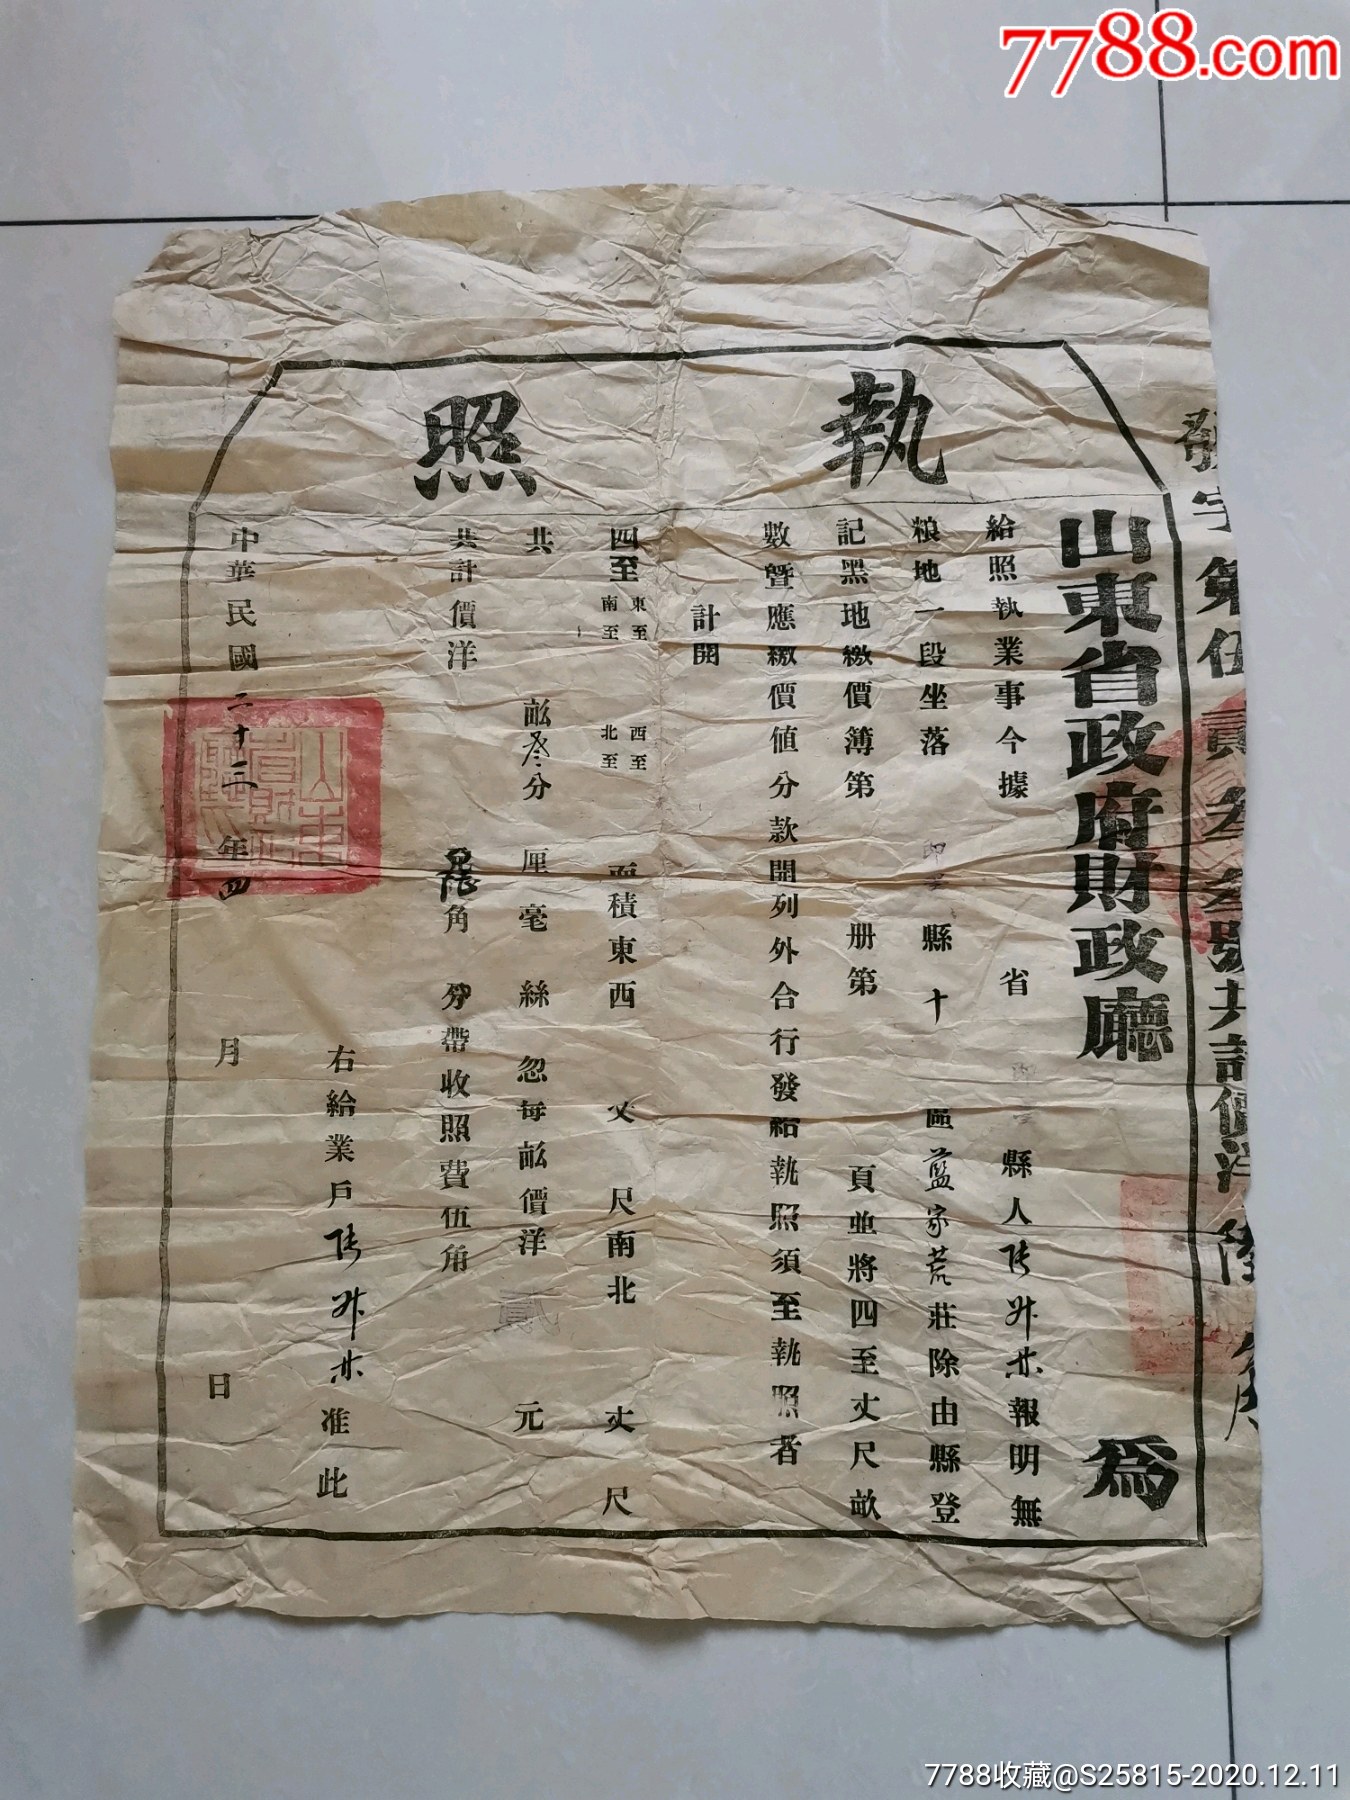 7788.com
執照
發字第伍貳叁叁號共計價洋陸角
山東省政府財政廳 為
給照執業事今據 省 縣人 報明無
粮地一段坐落 即墨縣十 區藍家荒莊除由縣登
記黑地繳價簿第 册第 頁並將四至丈尺畝
數暨應繳價值分款開列外合行發給執照須至執照者
計開
四至 東至 西至 南至 北至 面積東西 丈 尺南北 丈 尺
共 畝叁分 厘毫絲忽每畝價洋 貳 元
共計價洋 角 分帶收照費伍角
右給業戶 准此
中華民國二十三年四 月 日
7788收藏@S25815-2020.12.11